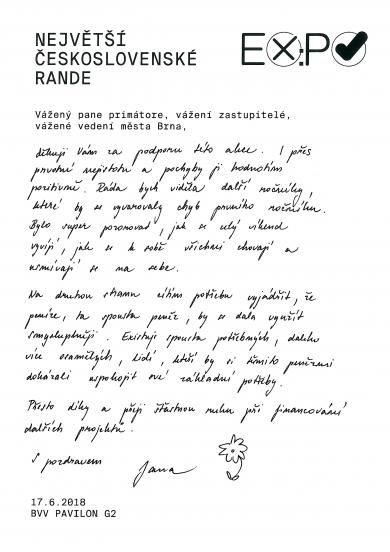 NEJVĚTŠÍ
ČESKOSLOVENSKÉ
RANDE
EX:PO
Vážený pane primátore, vážení zastupitelé,
vážené vedení města Brna,
děkuji Vám za podporu této akce. I přes
prvotní nejistotu a pochyby ji hodnotím
pozitivně. Ráda bych viděla další ročníky,
které by se vyvarovaly chyb prvního ročníku.
Bylo super pozorovat, jak se celý víkend
vyvíjí, jak se k sobě všichni chovají a
usmívají se na sebe.
Na druhou stranu cítím potřebu vyjádřit, že
peníze, ta spousta peněz, by se dala využít
smysluplněji. Existuje spousta potřebných, daleko
více osamělých, lidí, kteří by si těmito penězi
dokázali uspokojit své základní potřeby.
Přesto díky a přeji šťastnou ruku při financování
dalších projektů.
S pozdravem
Jana
17.6.2018
BVV PAVILON G2